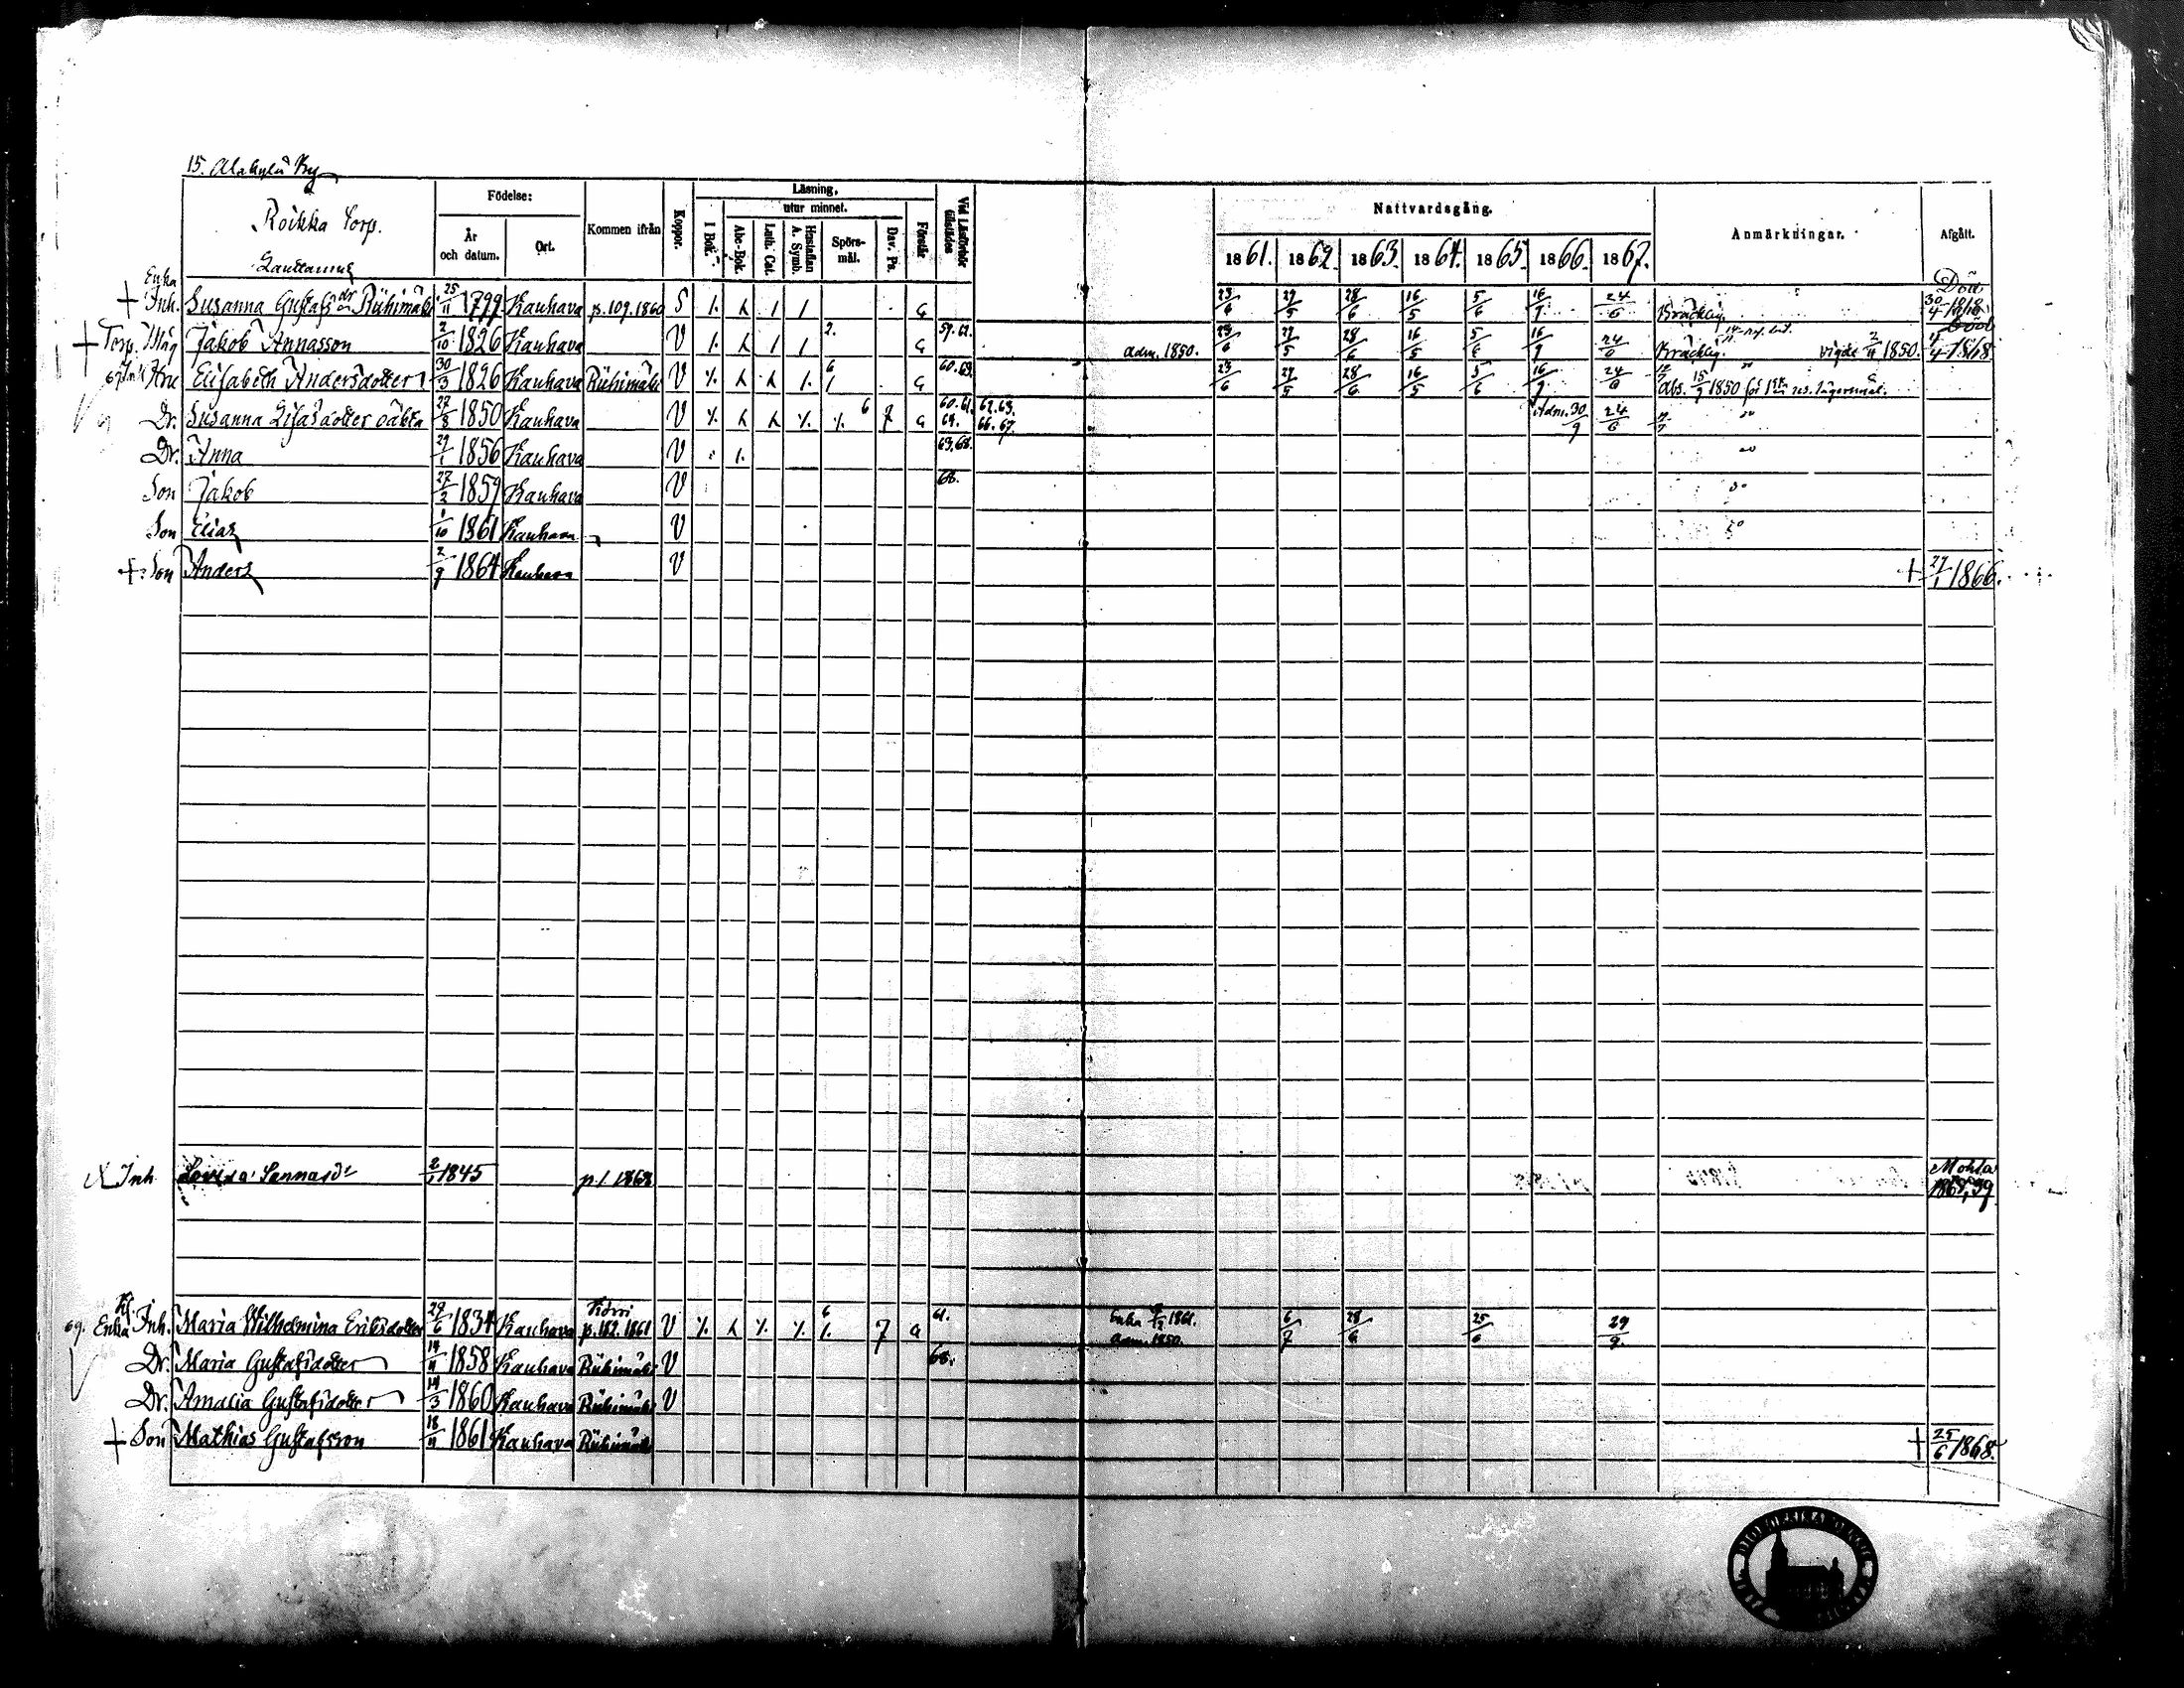 15. Alakylä By
Roikka Torp.
Födelse:
År och datum.
Ort.
Kommen ifrån
Koppor.
Läsning,
utur minnet.
I Bok.
Abc-Bok.
Luth. Cat.
Hustaflan A. Symb.
Spörs-mål.
Dav. Ps.
Förstår
Vid Läsförhör tillstädes
Nattvardsgång.
1861. 1862. 1863. 1864. 1865. 1866. 1867.
Anmärkningar.
Afgått.
Enka
+ Inh. Susanna Gustafsdr Riihimäki 25/11 1799 Kauhava p. 109. 1860 S 23/6 29/5 28/6 16/5 5/6 16/9 24/6 Bräcklig. Död 30/4 1868
+ Torp. Måg Jakob Annasson 2/10 1826 Kauhava V 2. 59. 62. adm. 1850. 23/6 29/5 28/6 16/5 5/6 16/9 24/6 Bräcklig. vigde 2/11 1850. Död 4/4 1868
Hru Elisabeth Andersdotter 30/3 1826 Kauhava Riihimäki V 6 60. 63. 23/6 29/5 28/6 16/5 5/6 16/9 24/6 Abs. 15/9 1850 för
Dr. Susanna Lisasdotter oäkta 22/8 1850 Kauhava V 6 7 60. 61. 62. 63. 64. 66. 67. Adm. 30/9 24/6
Dr. Anna 29/1 1856 Kauhava V 63, 68.
Son Jakob 27/2 1859 Kauhava V 68.
Son Elias 1/10 1861 Kauhava V
+ Son Anders 2/9 1864 Kauhava V + 27/1 1866.
Inh Lovisa Sannasdr 2/1 1845 p 1. 1868 1868, 39
69. Enka Inh. Maria Wilhelmina Eriksdotter 29/6 1834 Kauhava p. 182. 1861 V 6 7 61. Enka 1861. adm. 1850. 6/7 28/6 25/6 29/9.
Dr. Maria Gustafsdotter 14/11 1858 Kauhava Riihimäki V 68.
Dr. Amalia Gustafsdotter 14/3 1860 Kauhava Riihimäki V
+ Son Mathias Gustafsson 18/11 1861 Kauhava Riihimäki + 25/6 1868.